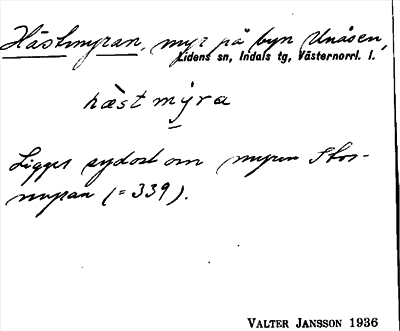 Hästmyran, myr på byn Unåsen,
Lidens sn, Indals tg, Västernorrl. l.
hàest mýra
Ligger sydost om myren Stor-
myran (= 339).
VALTER JANSSON 1936